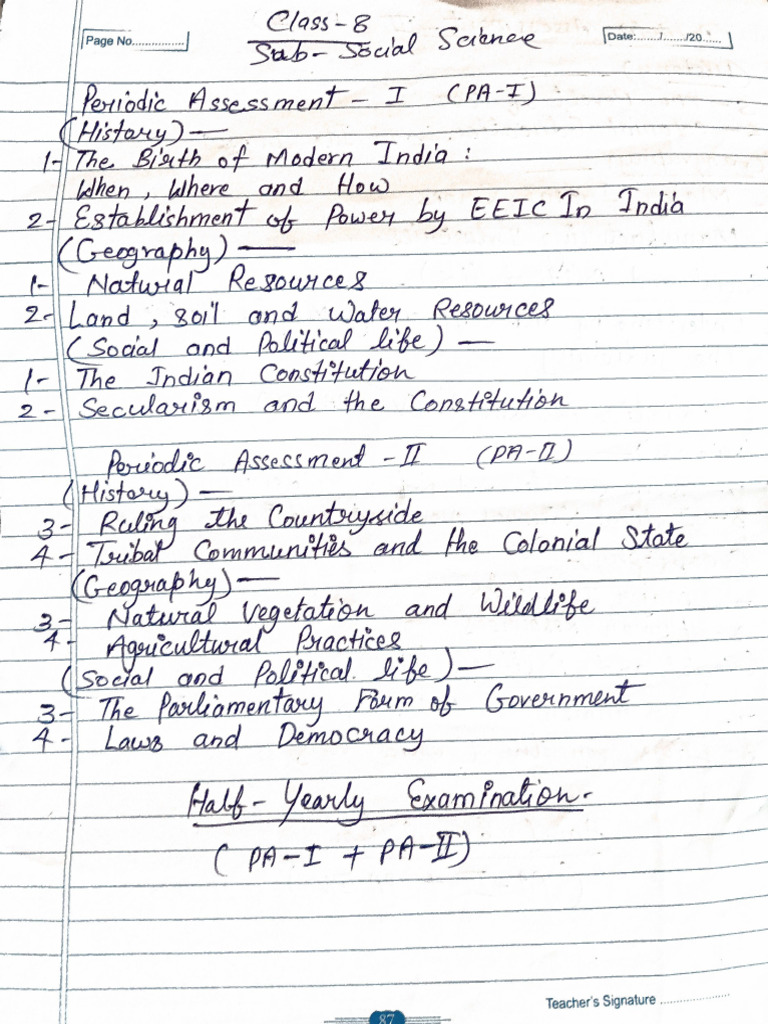 Class-8
Page No...............
Sub- Social Science
Date:......./......./20......
Periodic Assessment - I (PA-I)
(History) —
1- The Birth of Modern India :
When, Where and How
2- Establishment of Power by EEIC In India
(Geography) —
1- Natural Resources
2- Land, soil and Water Resources
(Social and Political life) —
1- The Indian Constitution
2- Secularism and the Constitution
Periodic Assessment - II (PA-II)
(History) —
3- Ruling the Countryside
4- Tribal Communities and the Colonial State
(Geography) —
3- Natural Vegetation and Wildlife
4- Agricultural Practices
(Social and Political life) —
3- The Parliamentary Form of Government
4- Laws and Democracy
Half-Yearly Examination-
(PA-I + PA-II)
Teacher's Signature ..................
87